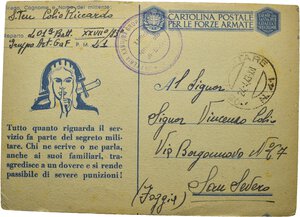 Grado, Cognome e Nome del mittente
S. Ten. Polio Riccardo
Reparto 201ª Batt. XXVII°
Gruppo Art. G.a.F. P.M. 41
CARTOLINA POSTALE
PER LE FORZE ARMATE
Al Signor
Signor Vincenzo
Via Borgonuovo N° 67
San Severo
(Foggia)
Tutto quanto riguarda il ser-
vizio fa parte del segreto mili-
tare. Chi ne scrive o ne parla,
anche ai suoi familiari, tra-
sgredisce a un dovere e si rende
passibile di severe punizioni!